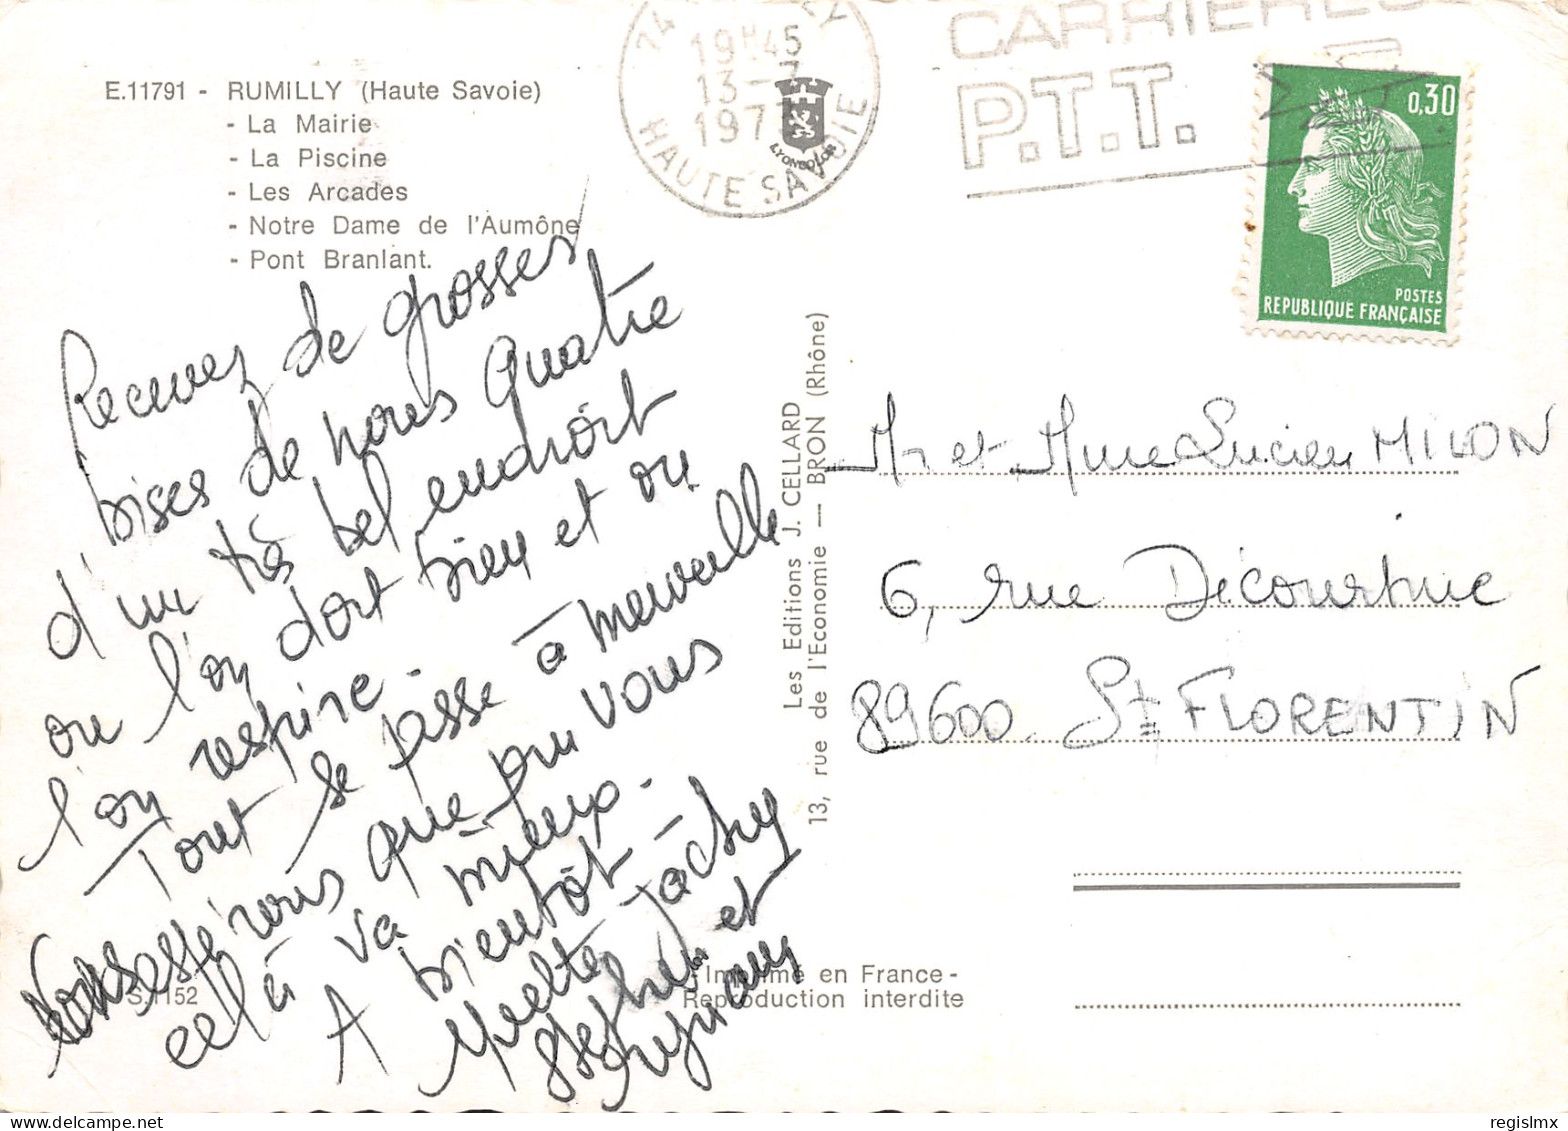 E.11791 - RUMILLY (Haute Savoie)
- La Mairie
- La Piscine
- Les Arcades
- Notre Dame de l'Aumône
- Pont Branlant.
Recevez de grosses
bises de nous quatre
d'un très bel endroit
ou l'on dort bien et ou
l'on respire.
Tout se passe à merveille
que pour vous
cela va mieux.
A bientôt -
Jacky
et
S.1152
19H45
13-7
197
HAUTE SAVOIE
LYONCOLOR
CARRIERES
P.T.T.
0,30
POSTES
REPUBLIQUE FRANÇAISE
Les Editions J. CELLARD
13, rue de l'Economie — BRON (Rhône)
Mr et Mme Lucien MILON
6, rue Décourtive
89600 St FLORENTIN
- Imprimé en France -
Reproduction interdite
regislmx